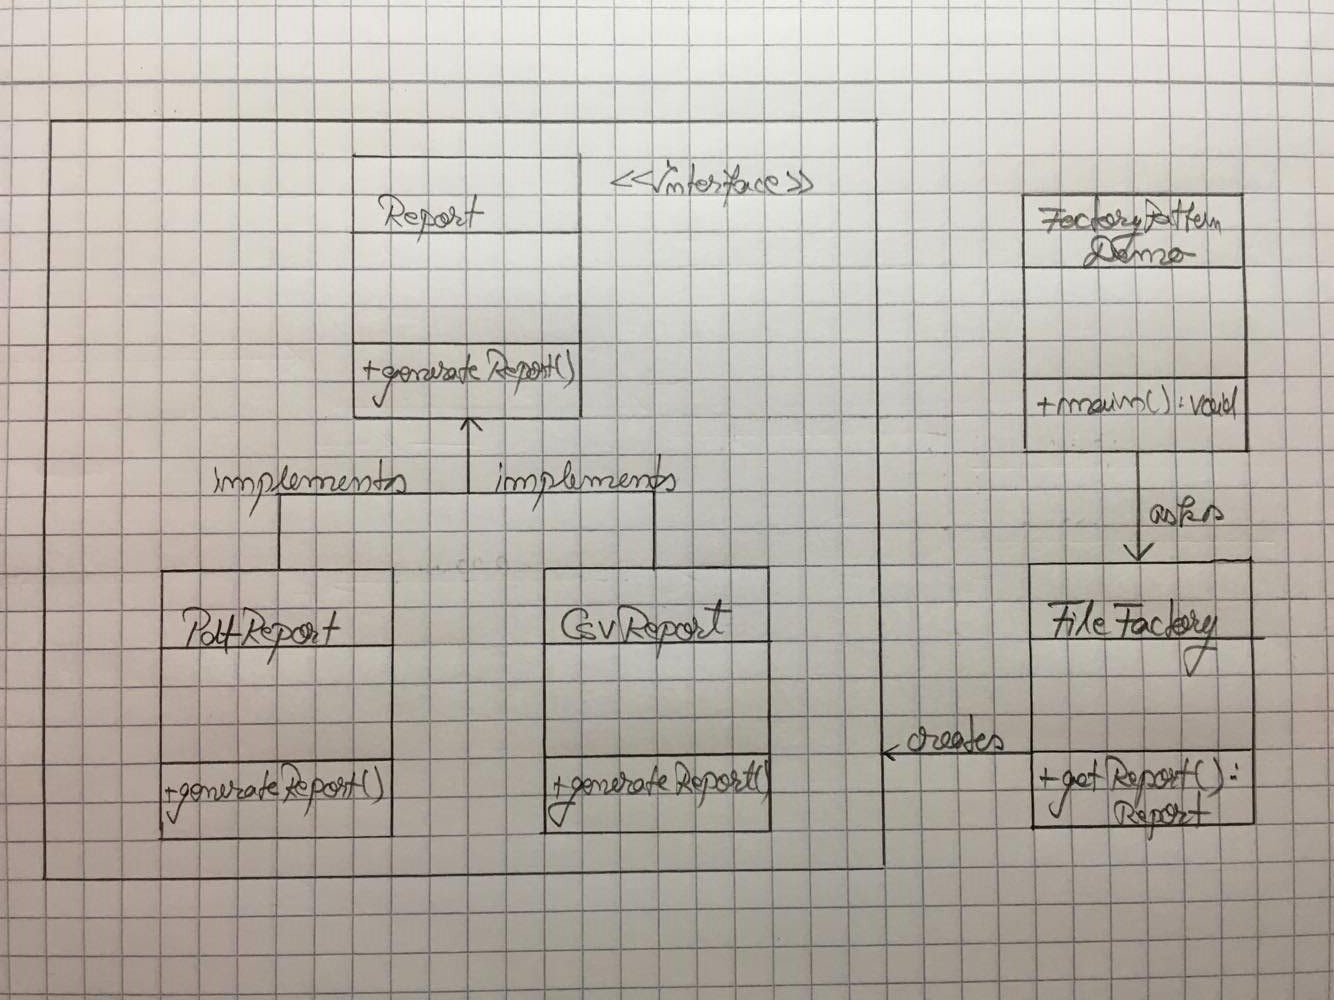 Report
<<interface>>
+generateReport()
implements
implements
PdfReport
+generateReport()
CsvReport
+generateReport()
FactoryPattern
Demo
+main():void
asks
FileFactory
creates
+getReport():
Report